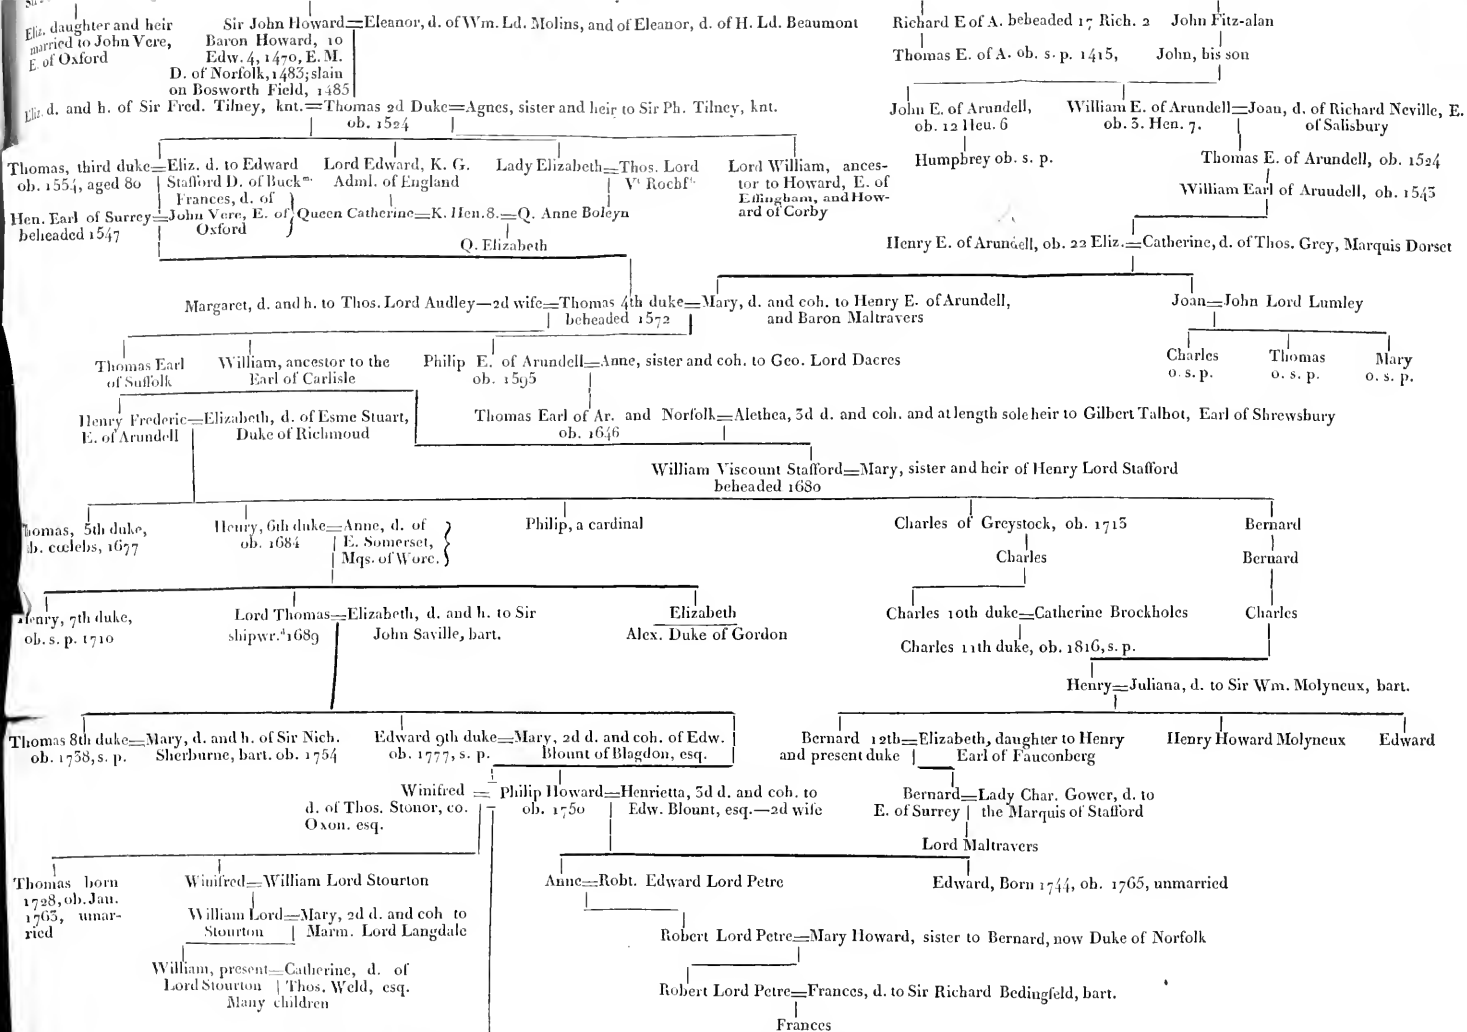 Eliz. daughter and heir
married to John Vere,
E. of Oxford
Sir John Howard=Eleanor, d. of Wm. Ld. Molins, and of Eleanor, d. of H. Ld. Beaumont
Baron Howard, 10
Edw. 4, 1470, E. M.
D. of Norfolk, 1483; slain
on Bosworth Field, 1485
Richard E of A. bebeaded 17 Rich. 2
John Fitz-alan
Thomas E. of A. ob. s. p. 1415,
John, bis son
Eliz. d. and h. of Sir Fred. Tilney, knt.=Thomas 2d Duke=Agnes, sister and heir to Sir Ph. Tilney, knt.
ob. 1524
John E. of Arundell,
ob. 12 Heu. 6
William E. of Arundell=Joan, d. of Richard Neville, E.
ob. 3. Hen. 7.
of Salisbury
Humphrey ob. s. p.
Thomas E. of Arundell, ob. 1524
William Earl of Aruudell, ob. 1543
Thomas, third duke=Eliz. d. to Edward
ob. 1554, aged 80
Stafford D. of Buckm.
Lord Edward, K. G.
Adml. of England
Lady Elizabeth=Thos. Lord
Vt Rochf.
Lord William, ances-
tor to Howard, E. of
Effingham, and How-
ard of Corby
Frances, d. of
Hen. Earl of Surrey=John Vere, E. of
beheaded 1547
Oxford
Queen Catherine=K. Hen. 8.=Q. Anne Boleyn
Q. Elizabeth
Henry E. of Arundell, ob. 22 Eliz.=Catherine, d. of Thos. Grey, Marquis Dorset
Margaret, d. and h. to Thos. Lord Audley—2d wife=Thomas 4th duke=Mary, d. and coh. to Henry E. of Arundell,
beheaded 1572
and Baron Maltravers
Joan=John Lord Lumley
Charles
o. s. p.
Thomas
o. s. p.
Mary
o. s. p.
Thomas Earl
of Suffolk
William, ancestor to the
Earl of Carlisle
Philip E. of Arundell=Anne, sister and coh. to Geo. Lord Dacres
ob. 1595
Henry Frederic=Elizabeth, d. of Esme Stuart,
E. of Arundell
Duke of Richmoud
Thomas Earl of Ar. and Norfolk=Alethea, 3d d. and coh. and at length sole heir to Gilbert Talbot, Earl of Shrewsbury
ob. 1646
William Viscount Stafford=Mary, sister and heir of Henry Lord Stafford
beheaded 1680
homas, 5th duke,
b. cœlebs, 1677
Henry, 6th duke=Anne, d. of
ob. 1684
E. Somerset,
Mqs. of Worc.
Philip, a cardinal
Charles of Greystock, ob. 1713
Bernard
Charles
Bernard
Henry, 7th duke,
ob. s. p. 1710
Lord Thomas=Elizabeth, d. and h. to Sir
shipwr.d 1689
John Saville, bart.
Elizabeth
Alex. Duke of Gordon
Charles 10th duke=Catherine Brockholes
Charles
Charles 11th duke, ob. 1816, s. p.
Henry=Juliana, d. to Sir Wm. Molyneux, bart.
Thomas 8th duke=Mary, d. and h. of Sir Nich.
ob. 1738, s. p.
Sherburne, bart. ob. 1754
Edward 9th duke=Mary, 2d d. and coh. of Edw.
ob. 1777, s. p.
Blount of Blagdon, esq.
Bernard 12th=Elizabeth, daughter to Henry
and present duke
Earl of Fauconberg
Henry Howard Molyneux
Edward
Winifred = Philip Howard=Henrietta, 3d d. and coh. to
d. of Thos. Stonor, co.
Oxon. esq.
ob. 1750
Edw. Blount, esq.—2d wife
Bernard=Lady Char. Gower, d. to
E. of Surrey
the Marquis of Stafford
Lord Maltravers
Thomas born
1728, ob. Jan.
1763, unmar-
ried
Winifred=William Lord Stourton
William Lord=Mary, 2d d. and coh to
Stourton
Marm. Lord Langdale
William, present=Catherine, d. of
Lord Stourton
Thos. Weld, esq.
Many children
Anne=Robt. Edward Lord Petre
Edward, Born 1744, ob. 1765, unmarried
Robert Lord Petre=Mary Howard, sister to Bernard, now Duke of Norfolk
Robert Lord Petre=Frances, d. to Sir Richard Bedingfeld, bart.
Frances